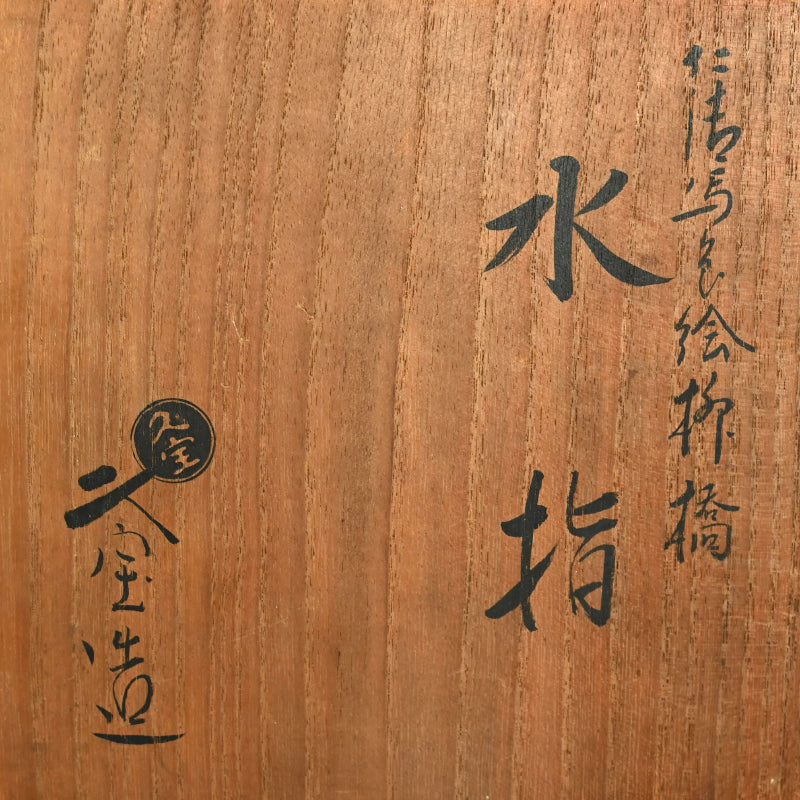 仁清写色絵柳橋
水指
久宝造